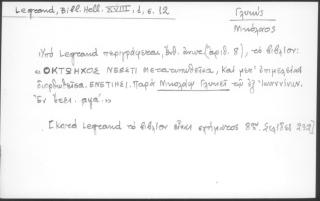 Legrand, Bibl. Hell. XVIII, 1, σ. 12
Γλυκύς
Νικόλαος
Ὑπὸ Legrand περιγράφεται, ἔνθ. ἀνωτ. (ἀριθ. 8), τὸ βιβλίον:
« ΟΚΤΩΗΧΟΣ ΝΕΩΣΤΙ μετατυπωθεῖσα, καὶ μετ' ἐπιμελείας
διορθωθεῖσα. ΕΝΕΤΙΗΣΙ. Παρὰ Νικολάῳ Γλυκεῖ τῷ ἐξ Ἰωαννίνων.
Ἐν ἔτει αψα΄. »
[Κατὰ Legrand τὸ βιβλίον εἶναι σχήματος 8ον. Σελίδες 232]